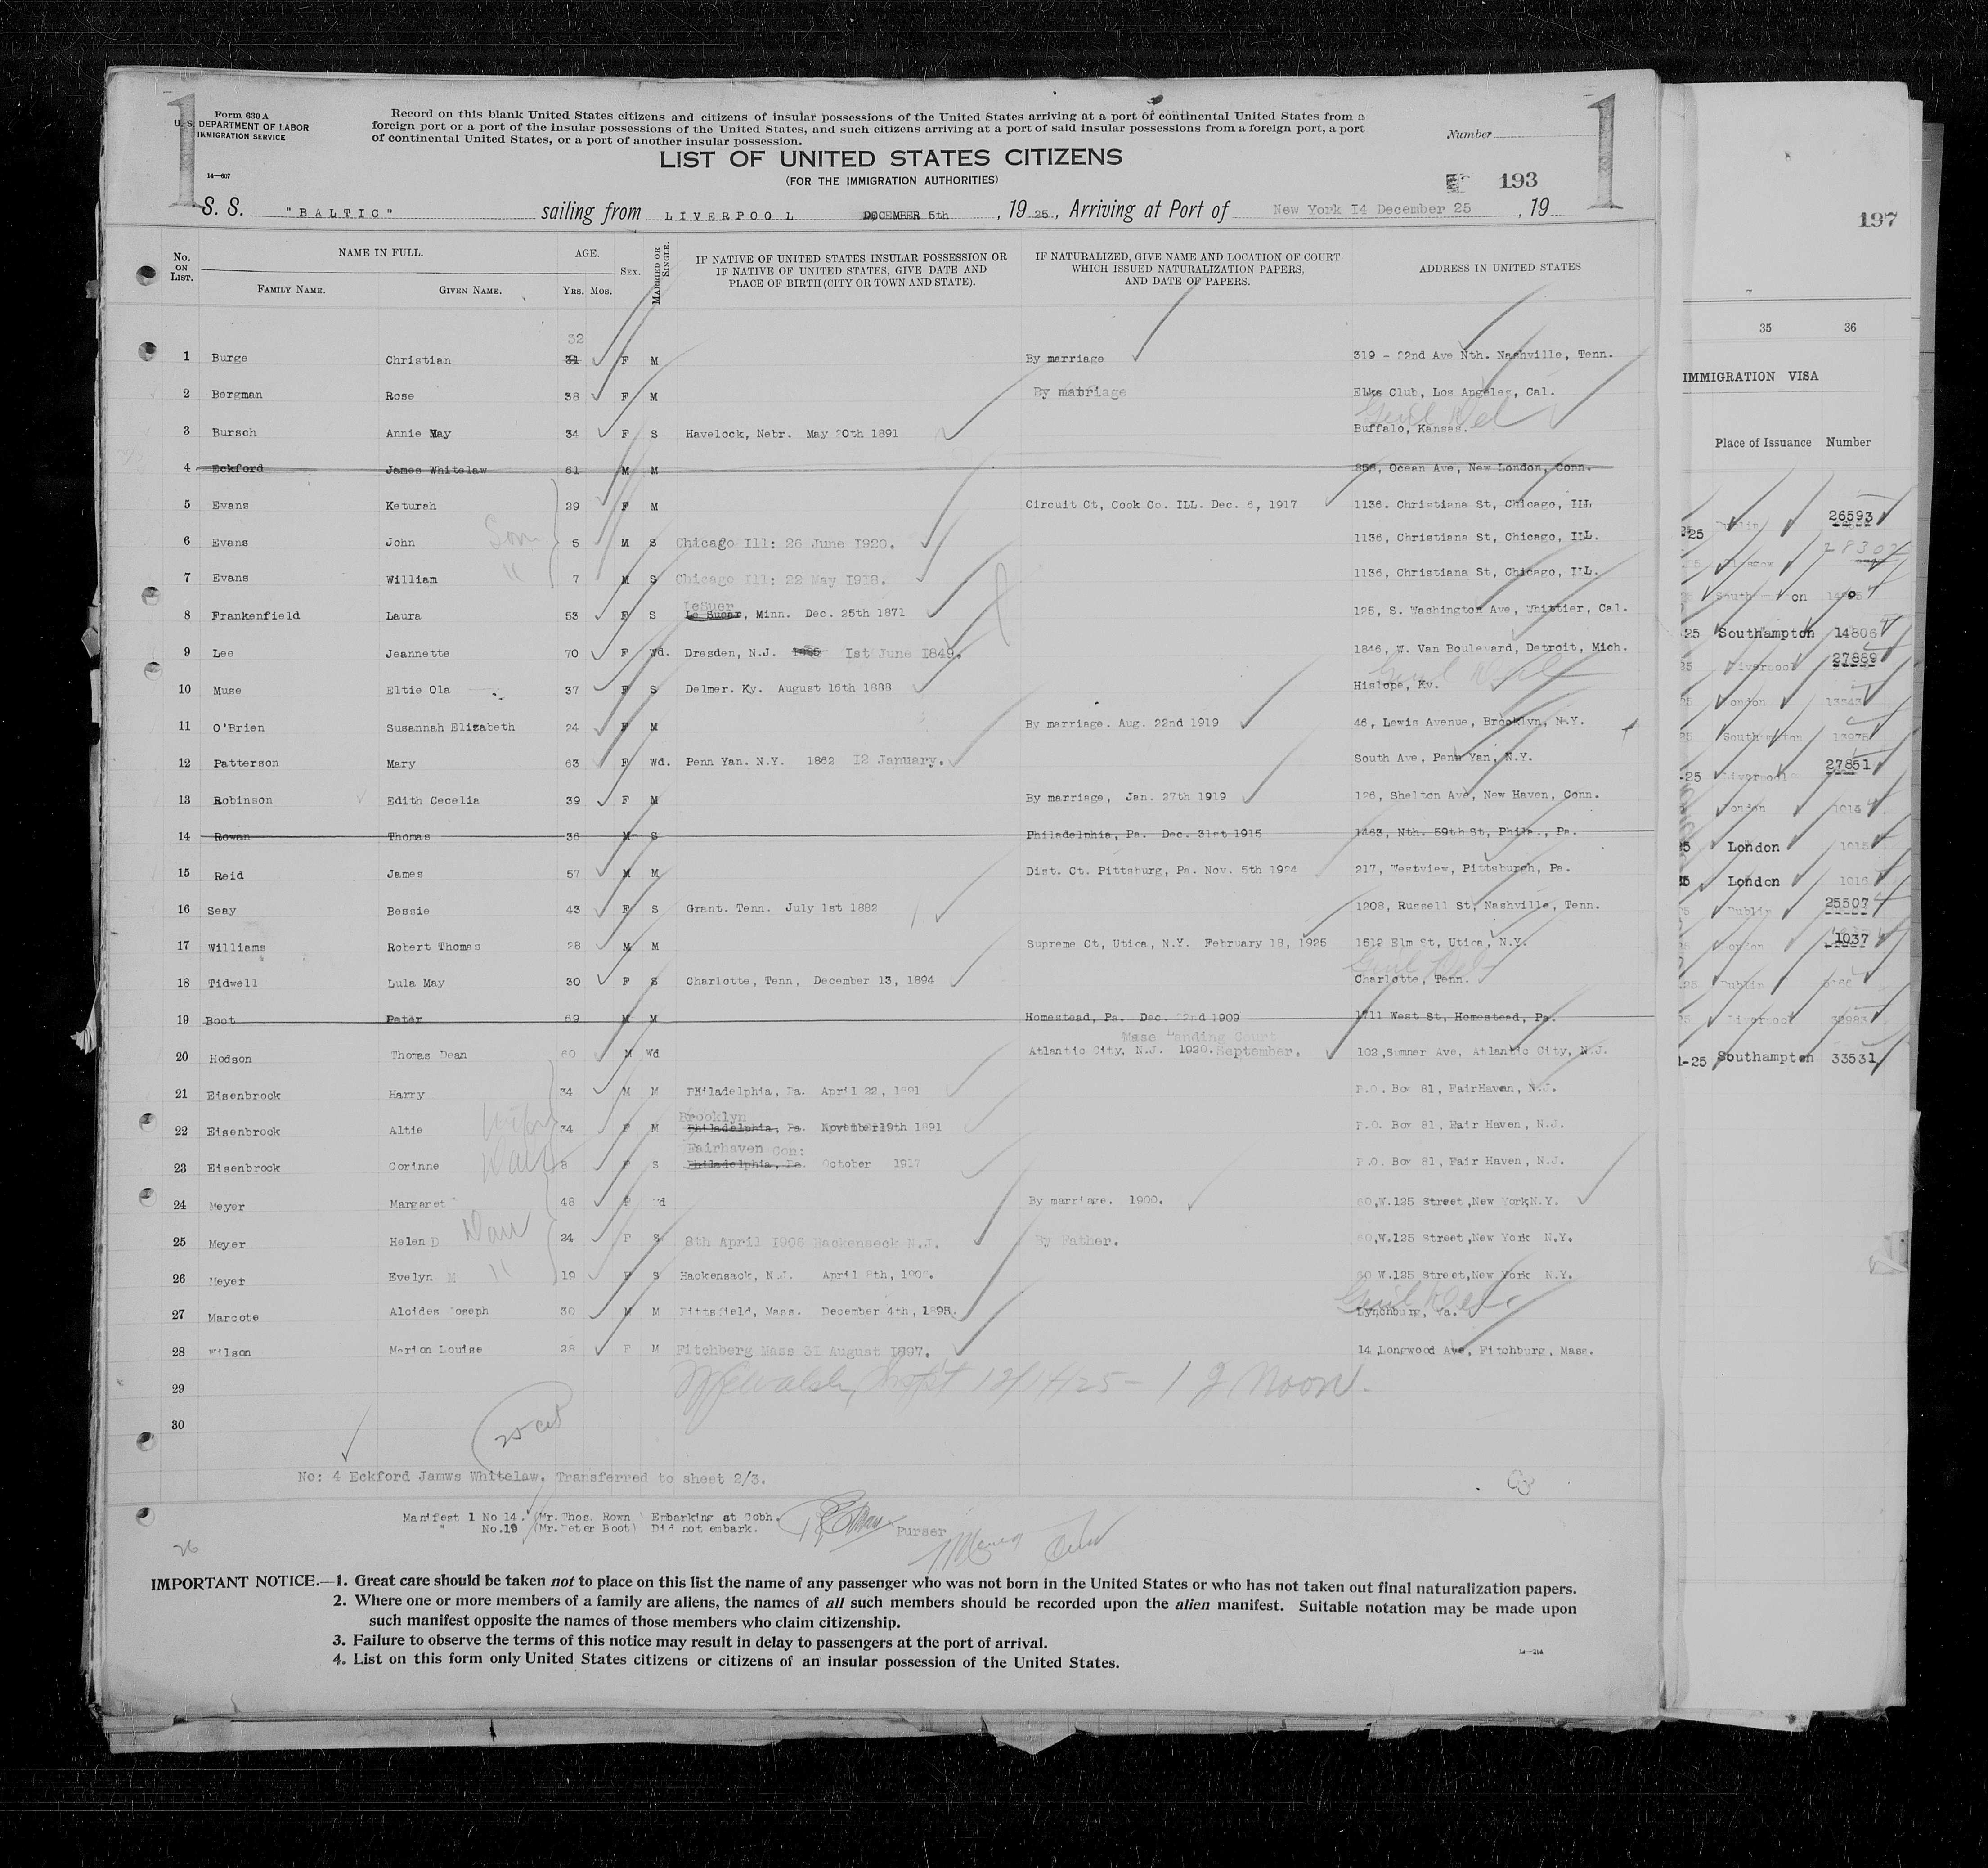 1
Form 630 A
U. S. DEPARTMENT OF LABOR
IMMIGRATION SERVICE
14—607
Record on this blank United States citizens and citizens of insular possessions of the United States arriving at a port of continental United States from a
foreign port or a port of the insular possessions of the United States, and such citizens arriving at a port of said insular possessions from a foreign port, a port
of continental United States, or a port of another insular possession.
Number
1
LIST OF UNITED STATES CITIZENS
(FOR THE IMMIGRATION AUTHORITIES)
193
S. S. "BALTIC" sailing from LIVERPOOL DECEMBER 5th, 19 25, Arriving at Port of New York 14 December 25, 19
No. ON LIST.
NAME IN FULL.
FAMILY NAME. GIVEN NAME.
AGE.
YRS. MOS.
SEX.
MARRIED OR SINGLE.
IF NATIVE OF UNITED STATES INSULAR POSSESSION OR
IF NATIVE OF UNITED STATES, GIVE DATE AND
PLACE OF BIRTH (CITY OR TOWN AND STATE).
IF NATURALIZED, GIVE NAME AND LOCATION OF COURT
WHICH ISSUED NATURALIZATION PAPERS,
AND DATE OF PAPERS.
ADDRESS IN UNITED STATES
32
1 Burge Christian 31 F M By marriage 319 - 22nd Ave Nth. Nashville, Tenn.
2 Bergman Rose 38 F M By marriage Elks Club, Los Angeles, Cal.
3 Bursch Annie May 34 F S Havelock, Nebr. May 20th 1891 Buffalo, Kansas.
4 Eckford James Whitelaw 61 M M 856, Ocean Ave, New London, Conn.
5 Evans Keturah 29 F M Circuit Ct, Cook Co. ILL. Dec. 6, 1917 1136. Christiana St, Chicago, ILL
6 Evans John Son 5 M S Chicago Ill: 26 June 1920. 1136, Christiana St, Chicago, ILL.
7 Evans William " 7 M S Chicago Ill: 22 May 1918. 1136, Christiana St, Chicago, ILL.
LeSuer
8 Frankenfield Laura 53 F S Le Suear, Minn. Dec. 25th 1871 125, S. Washington Ave, Whittier, Cal.
9 Lee Jeannette 70 F Wd. Dresden, N.J. 1st June 1849. 1846, W. Van Boulevard, Detroit, Mich.
10 Muse Eltie Ola 37 F S Delmer. Ky. August 16th 1888 Hislope, Ky.
11 O'Brien Susannah Elizabeth 24 F M By marriage. Aug. 22nd 1919 46, Lewis Avenue, Brooklyn, N.Y.
12 Patterson Mary 63 F Wd. Penn Yan. N.Y. 1862 12 January. South Ave, Penn Yan, N.Y.
13 Robinson Edith Cecelia 39 F M By marriage, Jan. 27th 1919 126, Shelton Ave, New Haven, Conn.
14 Rowan Thomas 36 M S Philadelphia, Pa. Dec. 31st 1915 1463, Nth. 59th St, Phila., Pa.
15 Reid James 57 M M Dist. Ct. Pittsburg, Pa. Nov. 5th 1924 217, Westview, Pittsburgh, Pa.
16 Seay Bessie 43 F S Grant. Tenn. July 1st 1882 1208, Russell St, Nashville, Tenn.
17 Williams Robert Thomas 28 M M Supreme Ct, Utica, N.Y. February 18, 1925 1512 Elm St, Utica, N.Y.
18 Tidwell Lula May 30 F S Charlotte, Tenn, December 13, 1894 Charlotte, Tenn.
19 Boot Peter 69 M M Homestead, Pa. Dec. 22nd 1909 1711 West St, Homestead, Pa.
20 Hodson Thomas Dean 60 M Wd Atlantic City, N.J. 1920. September. 102, Sumner Ave, Atlantic City, N.J.
21 Eisenbrock Harry 34 M M Philadelphia, Pa. April 22, 1891 P.O. Box 81, FairHaven, N.J.
Brooklyn
22 Eisenbrock Altie Wife 34 F M Philadelphia, Pa. November 19th 1891 P.O. Box 81, Fair Haven, N.J.
Fairhaven Con:
23 Eisenbrock Corinne Dau 8 F S Philadelphia, Pa. October 1917 P.O. Box 81, Fair Haven, N.J.
24 Meyer Margaret 48 F Wd By marriage. 1900. 60,W.125 Street,New York,N.Y.
25 Meyer Helen D Dau 24 F S 8th April 1906 Hackenseck N.J. By Father. 60,W.125 Street,New York N.Y.
26 Meyer Evelyn M " 19 F S Hackensack, N.J. April 8th, 1906. 60 W.125 Street,New York N.Y.
27 Marcote Alcides Joseph 30 M M Pittsfield, Mass. December 4th, 1895. Lynchburg, Va.
28 Wilson Marion Louise 28 F M Fitchberg Mass 31 August 1897. 14,Longwood Ave, Fitchburg, Mass.
29
12/14/25 - Noon.
30
No: 4 Eckford Jamws Whitelaw. Transferred to sheet 2/3.
Manifest 1 No 14. (Mr. Thos. Rown ) Embarking at Cobh.
" No.19 (Mr. Peter Boot) Did not embark.
Purser
26
IMPORTANT NOTICE.—1. Great care should be taken not to place on this list the name of any passenger who was not born in the United States or who has not taken out final naturalization papers.
2. Where one or more members of a family are aliens, the names of all such members should be recorded upon the alien manifest. Suitable notation may be made upon
such manifest opposite the names of those members who claim citizenship.
3. Failure to observe the terms of this notice may result in delay to passengers at the port of arrival.
4. List on this form only United States citizens or citizens of an insular possession of the United States.
14—214
197
35 36
IMMIGRATION VISA
Place of Issuance Number
Dublin 26593
25 Glasgow 28307
Southampton
25 Southampton 14806
25 Liverpool 27889
25 London 13343
25 Southampton 13975
25 Liverpool 27851
London 1014
25 London 1015
25 London 1016
25 Dublin 25507
25 London 1037
25 Dublin
25 Liverpool
1-25 Southampton 33531